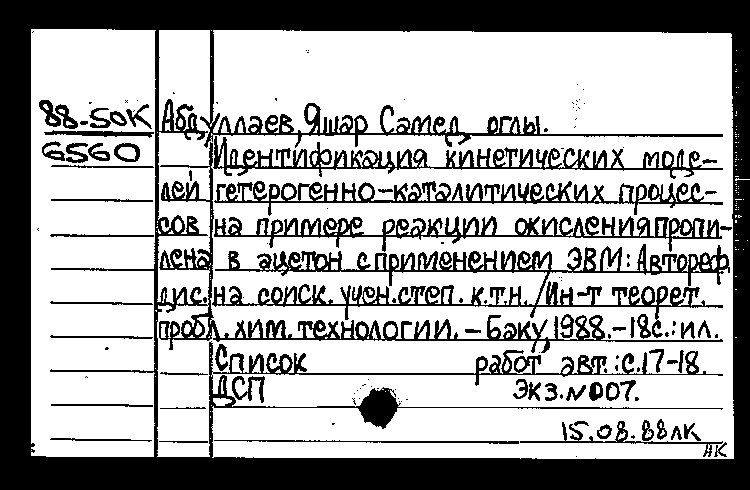 88-50К Абдуллаев, Яшар Самед оглы.
6560 Идентификация кинетических моде-
лей гетерогенно-каталитических процес-
сов на примере реакции окисления пропи-
лена в ацетон с применением ЭВМ: Автореф.
дис. на соиск. учен. степ. к.т.н. /Ин-т теорет.
пробл. хим. технологии. - Баку, 1988. - 18с.: ил.
Список работ авт.: с.17-18.
ДСП ЭКЗ.N007.
15.08.88 ЛК
НК